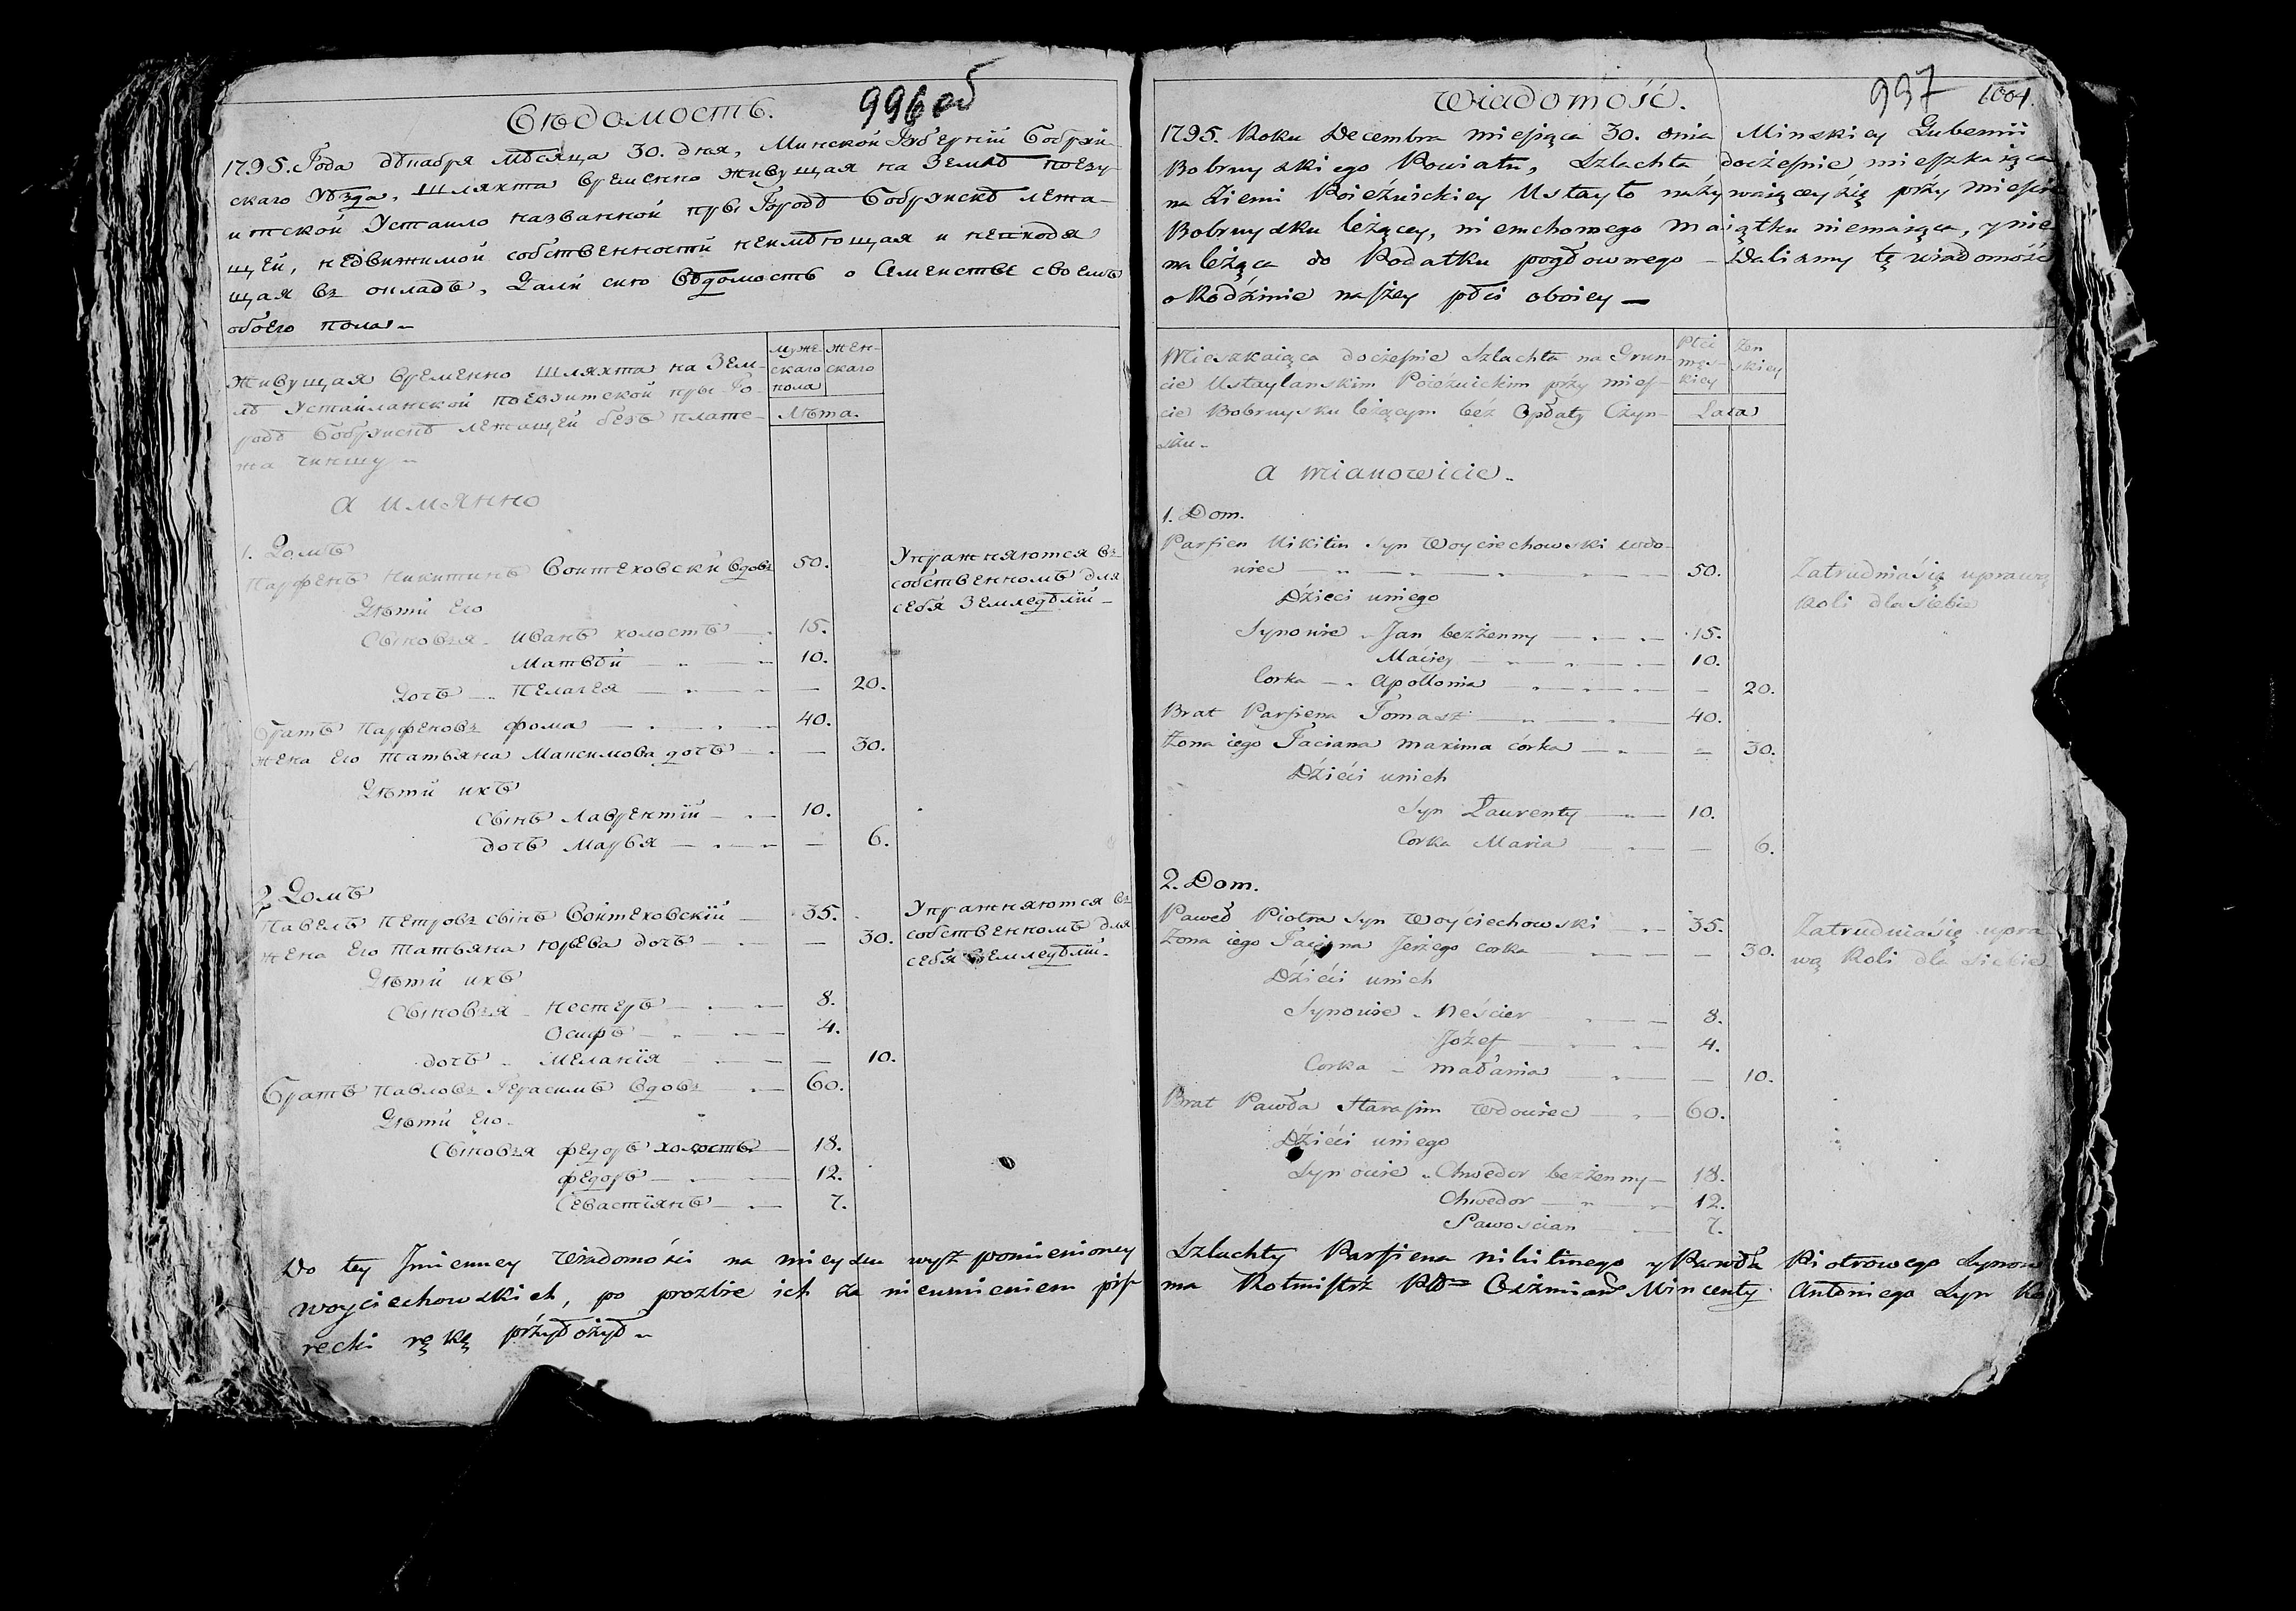 996 об
Вѣдомость.
1795. Года декабря мѣсяца 30. дня, Минской Губерніи Бобруй-
скаго Уѣзда, шляхта временно живущая на Землѣ поезу-
итской Устаило названной при Городѣ Бобруискѣ лежа-
щей, недвижимой собственности неимѣющая и невходя
щая въ окладъ, дали сию вѣдомость о Семеистве своемъ
обоего пола
Живущая временно шляхта на Зем-
лѣ Устаиланской поезуитской при Го-
родѣ Бобруискѣ лежащей безъ плате-
жа чиншу
муже
скаго
пола
жен-
скаго
Лѣта.
а имянно
1. Домъ
Парфенъ Никитинъ Воитеховски вдовъ 50. Упражняются въ
собственномъ для
себя Земледѣлїи
Дѣти его
Сыновья Иванъ холостъ 15.
Матвѣй 10.
Дочь Пелагея — 20.
Братъ Парфеновъ Фома 40.
Жена его Татьяна Максимова дочь — 30.
Дѣти ихъ
Сынъ Лаврентїй 10.
дочь Марья — 6.
2. Домъ
Павелъ Петровъ сынъ Воитеховскїй 35. Упражняются въ
Жена его Татьяна Юрьева дочь — 30. собственномъ для
себя Земледѣлїи
Дѣти ихъ
Сыновья Нестеръ 8.
Осифъ 4.
дочь Меланїя — 10.
Братъ Павловъ Герасимъ вдовъ 60.
Дѣти его
Сыновья Федоръ холостъ 18.
Федоръ 12.
Севастїянъ 7.
Do tey Jmienney Wiadomości na mieyscu wyż pomienioney
Woyciechowskich, po prozbie ich za nieumieniem pis
recki rękę przyłożył
997 1004.
Wiadomość.
1795. Roku Decembra miesiąca 30. dnia Minskiey Gubernii
Bobruyskiego Powiatu, Szlachta doczesnie mieszkaiąca
na Ziemi Poieźuickiey Ustayło nazywaiącey się przy mieście
Bobruysku leżącey, niemchomego maiątku niemaiąca, y nie
należąca do Podatku pogłownego – Daliśmy tę wiadomość
o Rodzinie naszey płci oboiey —
Mieszkaiąca doczesnie Szlachta na Grun-
cie Ustaylanskim Poieźuickim przy mies-
cie Bobruysku leżącym bez Opłaty Czyn-
szu.
Płci
męs-
kiey
Żen
skiey
Lata
a mianowicie.
1. Dom.
Parfien Nikitin Syn Woyciechowski wdo-
wiec 50. Zatrudniasię uprawą
Roli dla siebie
Dzieci uniego
Synowie Jan bezżenny 15.
Maciey 10.
Corka Apollonia — 20.
Brat Parfiena Tomasz 40.
Żona iego Taciana Maxima córka — 30.
Dzieci unich
Syn Laurenty 10.
Corka Maria — 6.
2. Dom.
Paweł Piotra Syn Woyciechowski 35. Zatrudniasię upra
Zona iego Taciana Jerzego corka — 30. wą Roli dla siebie
Dzieci unich
Synowie Neścier 8.
Józef 4.
Corka Małania — 10.
Brat Pawła Harasim Wdowiec 60.
Dzieci uniego
Synowie Chwedor bezżenny 18.
Chwedor 12.
Sawoscian 7.
Szlachty Parfiena Nikitinego y Pawła Piotrowego Synow
ma Rotmistrz Ptu Oszmian Wincenty Antoniego Syn Ko